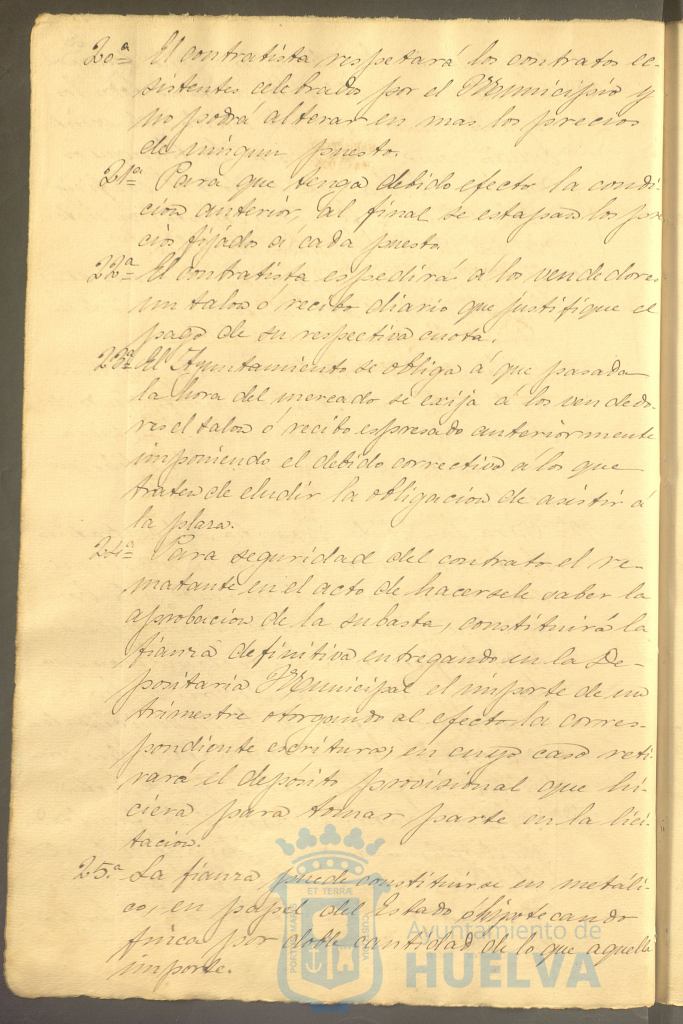 20ª El contratista respetará los contratos ec-
sistentes celebrados por el Municipio y
no podrá alterar en mas los precios
de ningun puesto.
21ª Para que tenga debido efecto la condi-
cion anterior, al final se estapan los pre-
cios fijados á cada puesto
22ª El contratista espedirá á los vendedores
un talon ó recibo diario que justifique el
pago de su respectiva cuota.
23ª El Ayuntamiento se obliga á que pasada
la hora del mercado se exija á los vendedo-
res el talon ó recibo espresado anteriormente
imponiendo el debido correctivo á los que
traten de eludir la obligacion de asistir á
la plaza.
24ª Para seguridad del contrato el re-
matante en el acto de hacersele saber la
aprobacion de la subasta, constituirá la
fianza definitiva entregando en la De-
positaria Municipal el importe de un
trimestre otorgando al efecto la corres-
pondiente escritura, en cuyo caso reti-
rará el depósito provisional que hi-
ciera para tomar parte en la lici-
tacion.
25ª La fianza puede constituirse en metáli-
co, en papel del Estado ó hipotecando
finca por doble cantidad de lo que aquella
importe.
ET TERRA
PORTUS MARIS
CUSTODIA
Ayuntamiento de
HUELVA